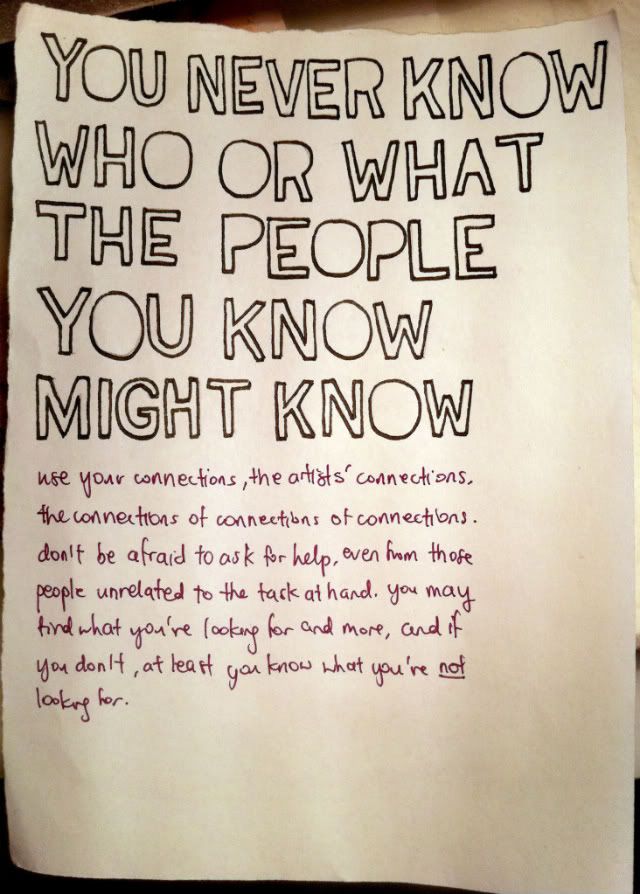 YOU NEVER KNOW
WHO OR WHAT
THE PEOPLE
YOU KNOW
MIGHT KNOW
use your connections, the artists' connections.
the connections of connections of connections.
don't be afraid to ask for help, even from those
people unrelated to the task at hand. you may
find what you're looking for and more, and if
you don't, at least you know what you're not
looking for.